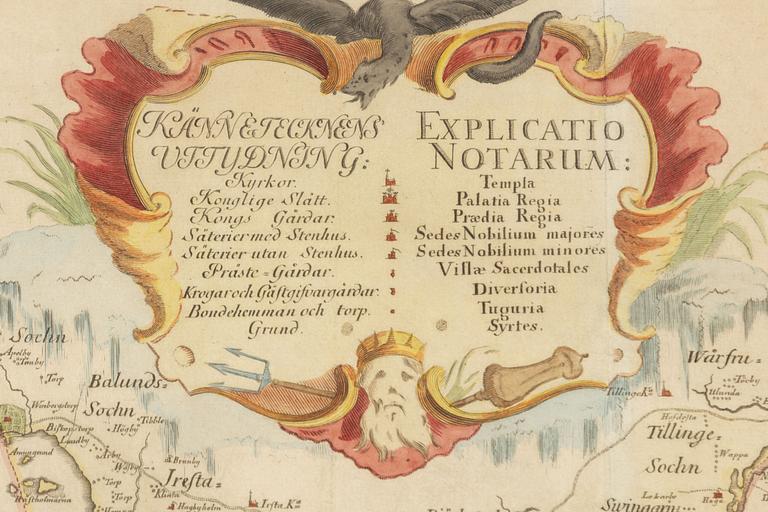 KÄNNETECKNENS
UTTYDNING:
Kyrkor.
Konglige Slått.
Kongs Gårdar.
Säterier med Stenhus.
Säterier utan Stenhus.
Präste=Gårdar.
Krogar och Gästgifvargårdar.
Bondehemman och torp.
Grund.
EXPLICATIO
NOTARUM:
Templa
Palatia Regia
Prædia Regia
Sedes Nobilium majores
Sedes Nobilium minores
Villæ Sacerdotales
Diversoria
Tuguria
Syrtes.
Sochn
Apelby
Täuby
Torp
Balunds=
Sochn
Tibble
Högby
Lundby
Arby
Torp
Torp
Branby
Iresta=
Klinta
Hagbyholm
Irsta K.a
Wårfru=
Täcby
Ulunda
Tillinge K.a
Tillinge=
Sochn
Wappa